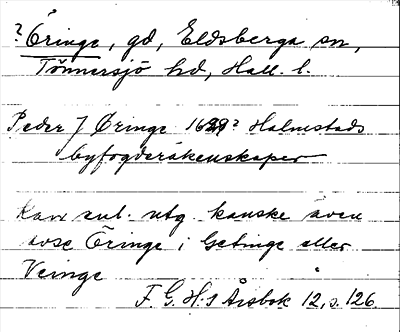 ? Öringe, gd, Eldsberga sn,
Tönnersjö hd, Hall. l.
Peder J Øringe 1629? Halmstads
byfogderäkenskaper
Kan enl. utg. kanske även
avse Öringe i Getinge eller
Veinge
F. G. H:s Årsbok 12, s. 126.